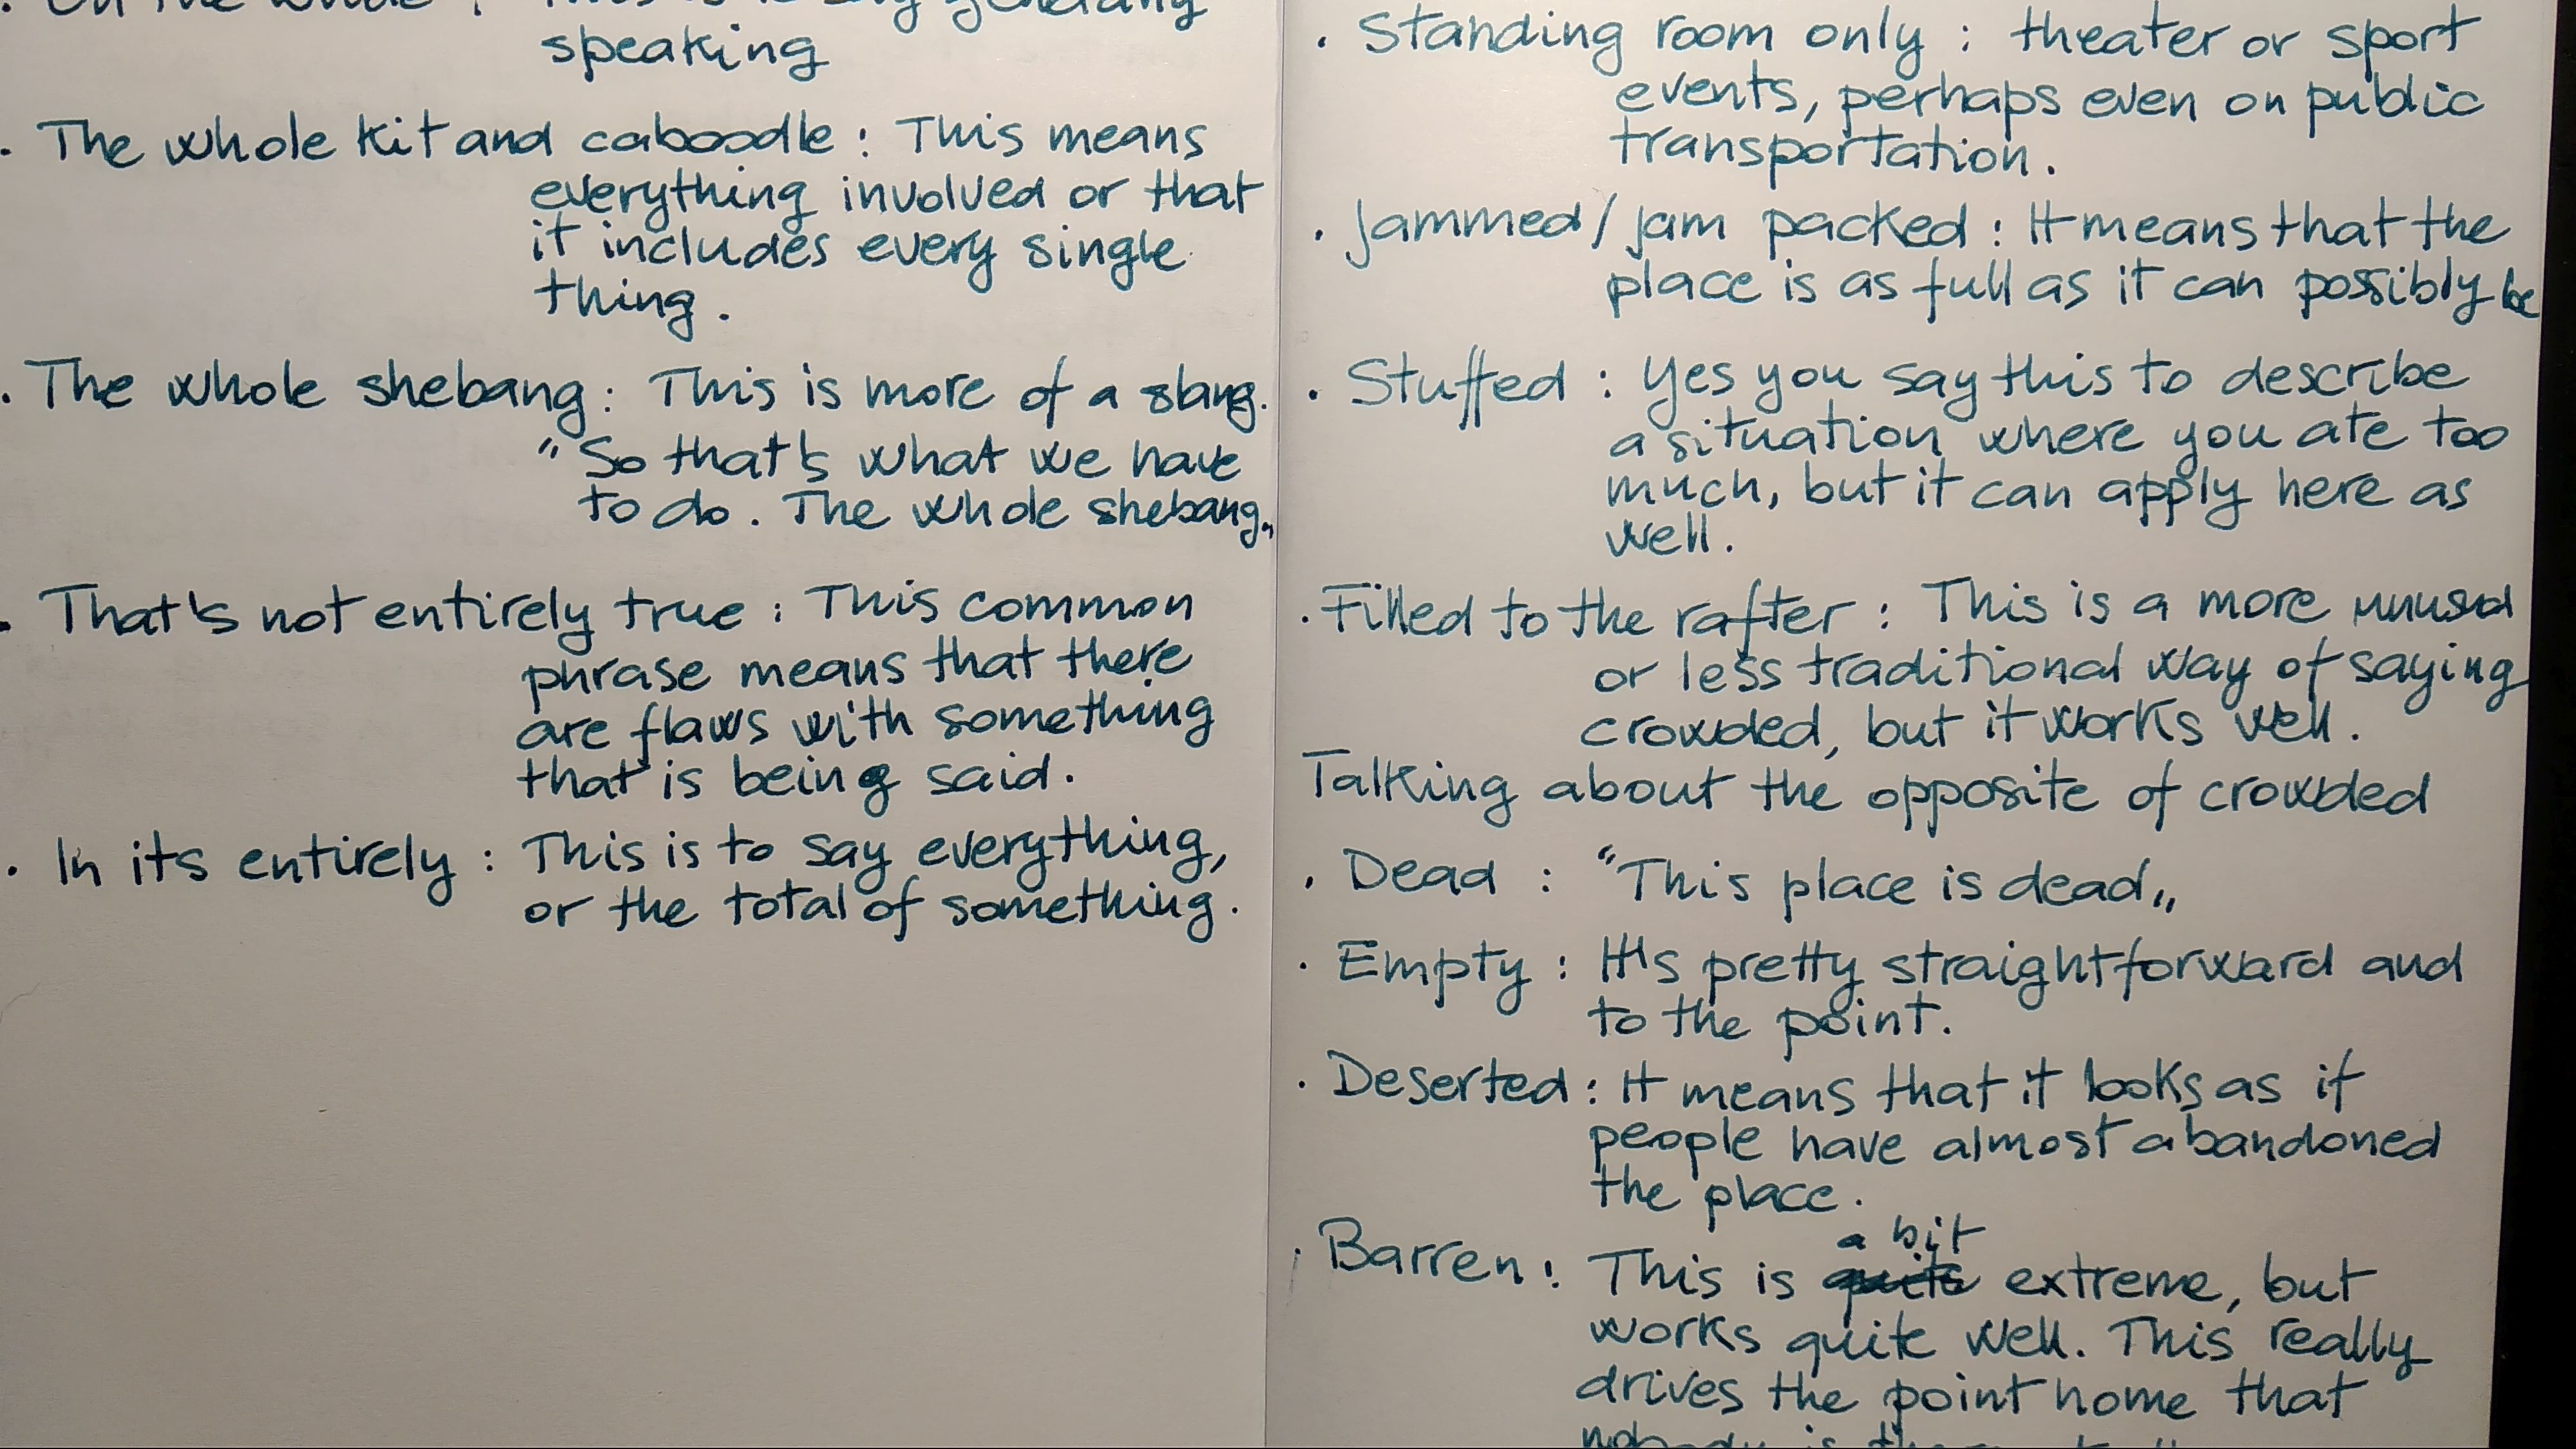 On the whole : This is to say generally
speaking
. The whole kit and caboodle : This means
everything involved or that
it includes every single
thing.
. The whole shebang : This is more of a slang.
"So that's what we have
to do. The whole shebang„
. That's not entirely true : This common
phrase means that there
are flaws with something
that is being said.
. In its entirely : This is to say everything,
or the total of something.
. Standing room only : theater or sport
events, perhaps even on public
transportation.
. Jammed/jam packed : It means that the
place is as full as it can possibly be
. Stuffed : Yes you say this to describe
a situation where you ate too
much, but it can apply here as
well.
. Filled to the rafter : This is a more unusual
or less traditional way of saying
crowded, but it works well.
Talking about the opposite of crowded
. Dead : "This place is dead„
. Empty : It's pretty straightforward and
to the point.
. Deserted : It means that it looks as if
people have almost abandoned
the place.
a bit
. Barren : This is quite extreme, but
works quite well. This really
drives the point home that
nobody is